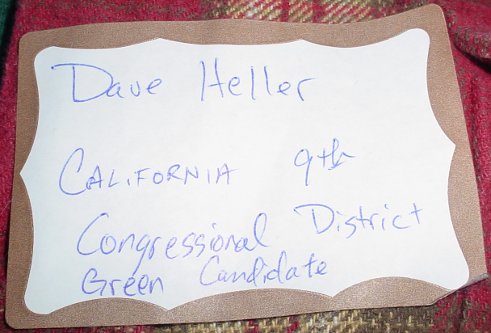 Dave Heller
CALIFORNIA 9th
Congressional District
Green Candidate